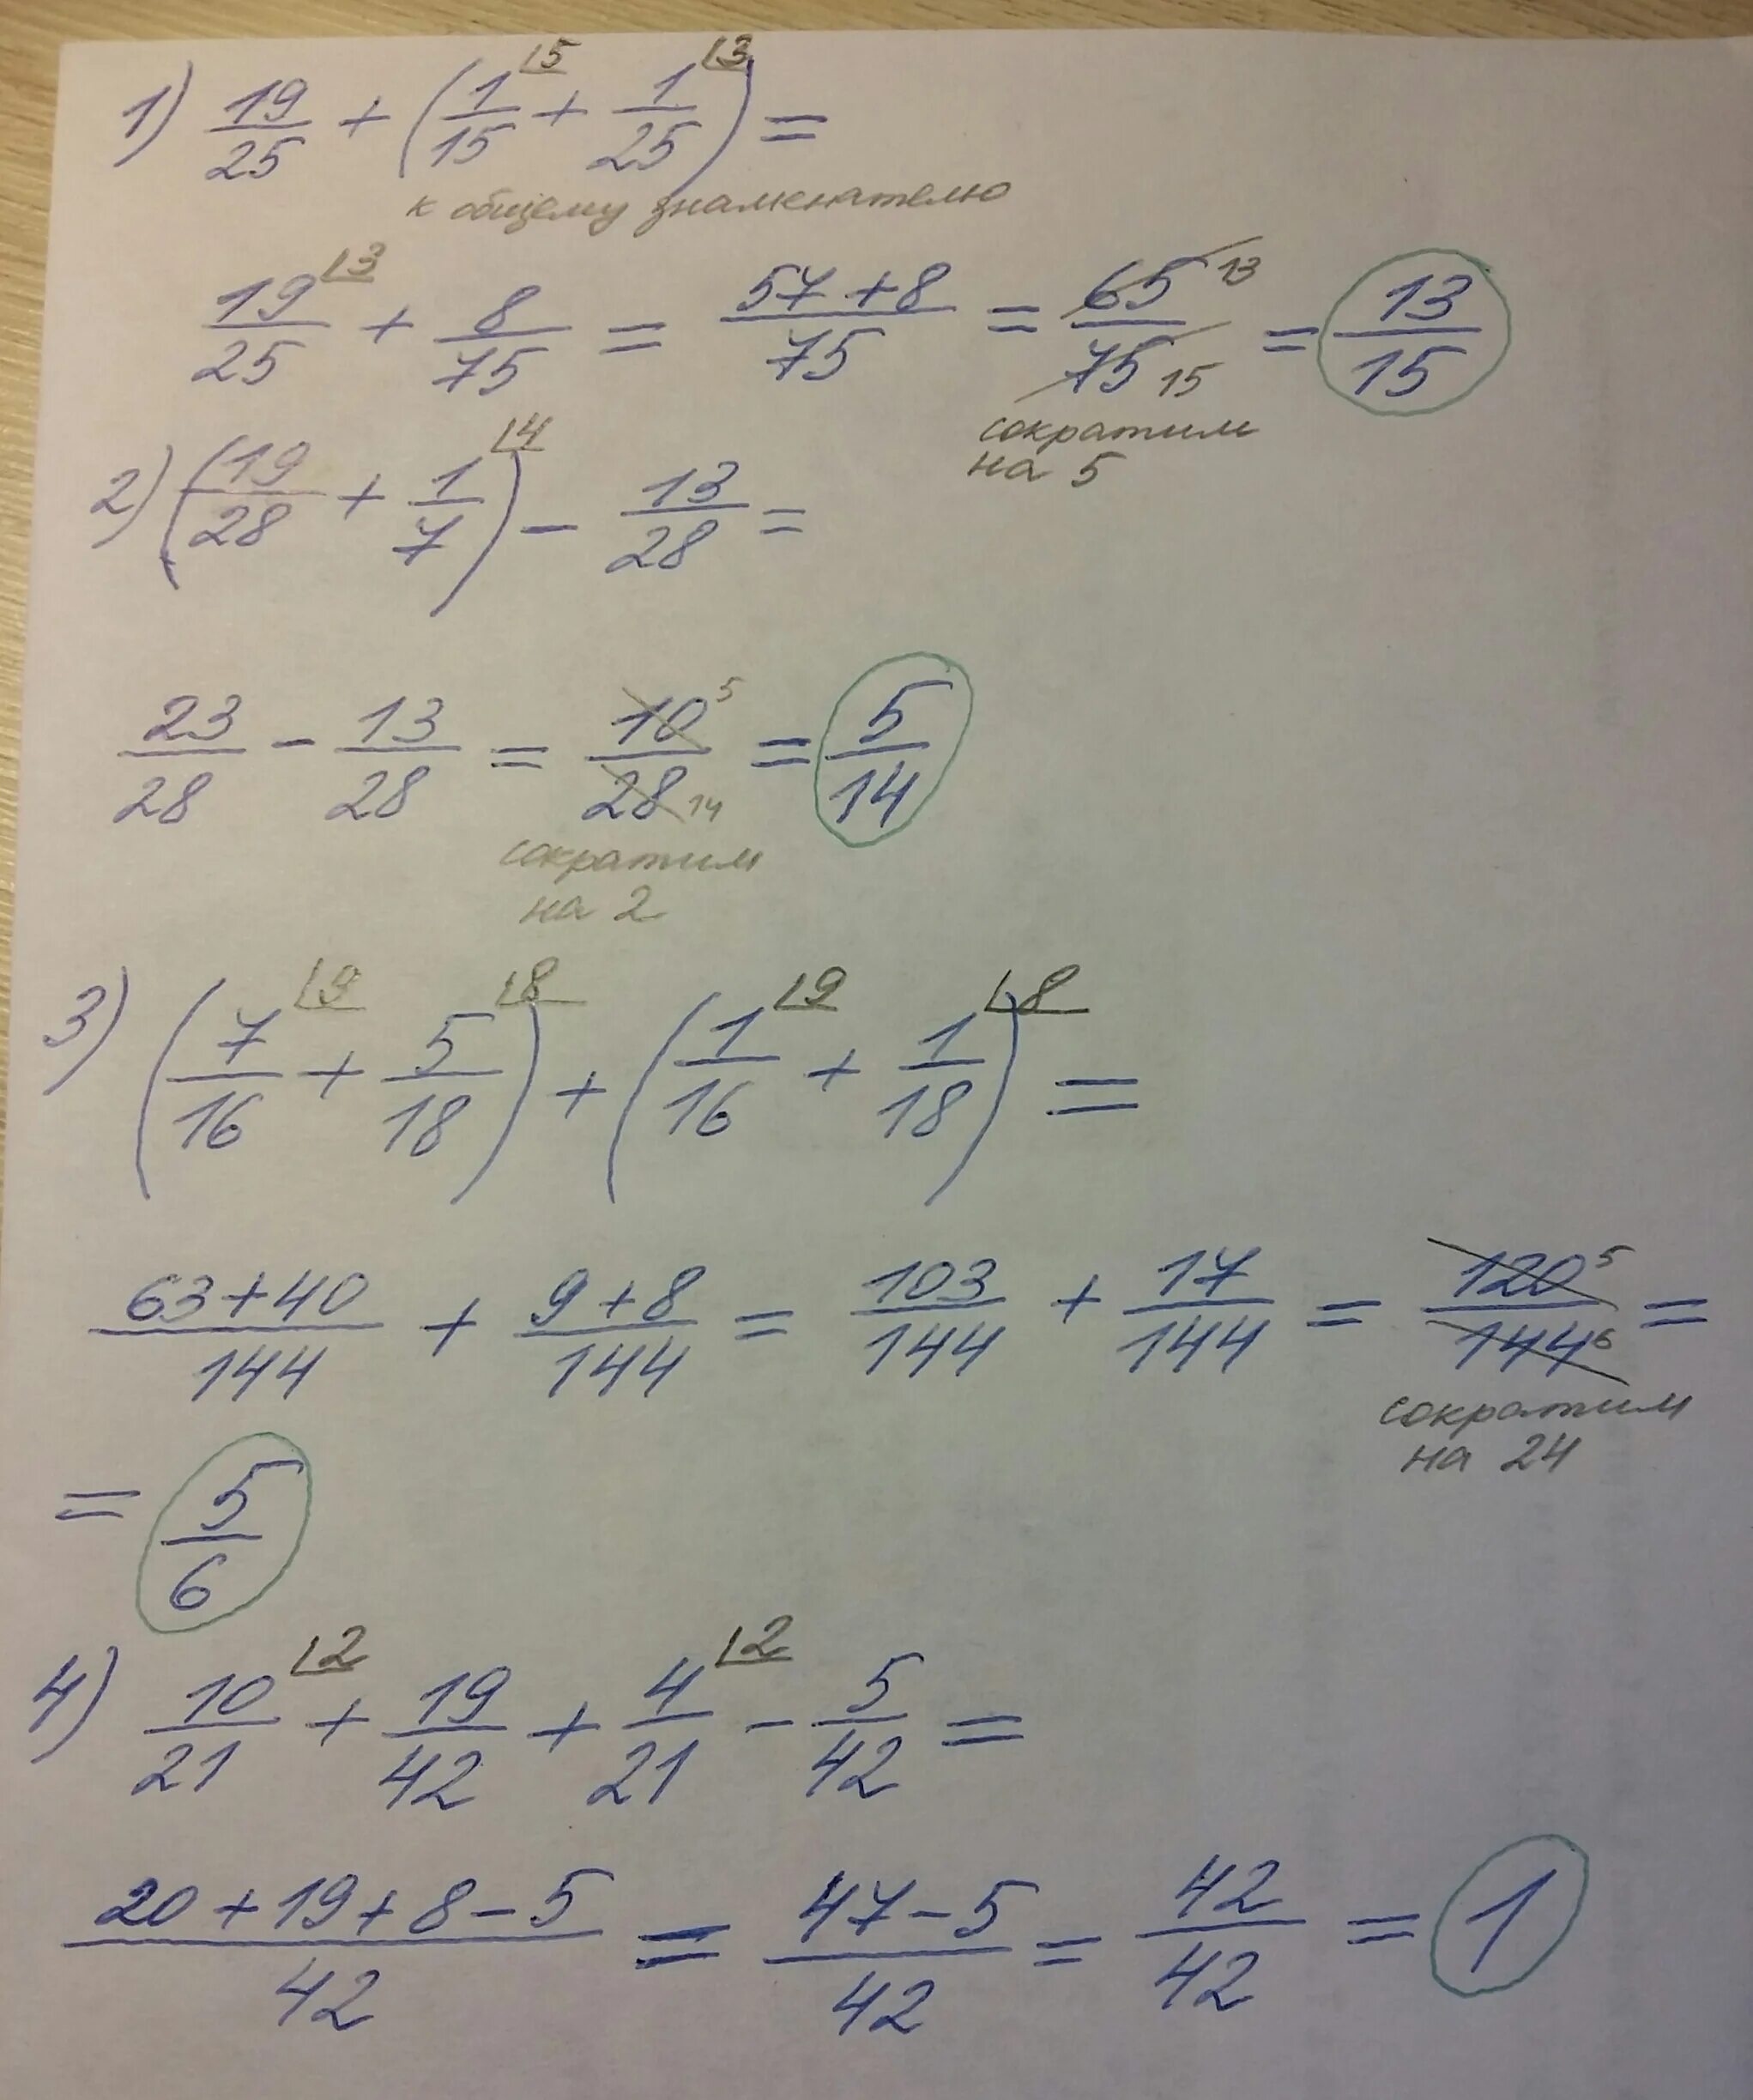 1) 19/25 + (1/15 ⌊5 + 1/25 ⌊3) =
к общему знаменателю
19/25 ⌊3 + 8/75 = (57+8)/75 = 65/75 13 15 = 13/15
сократим
на 5
2) (19/28 + 1/7 ⌊4) - 13/28 =
23/28 - 13/28 = 10/28 5 14 = 5/14
сократим
на 2
3) (7/16 ⌊9 + 5/18 ⌊8) + (1/16 ⌊9 + 1/18 ⌊8) =
(63+40)/144 + (9+8)/144 = 103/144 + 17/144 = 120/144 5 6 =
сократим
на 24
= 5/6
4) 10/21 ⌊2 + 19/42 + 4/21 ⌊2 - 5/42 =
(20+19+8-5)/42 = (47-5)/42 = 42/42 = 1